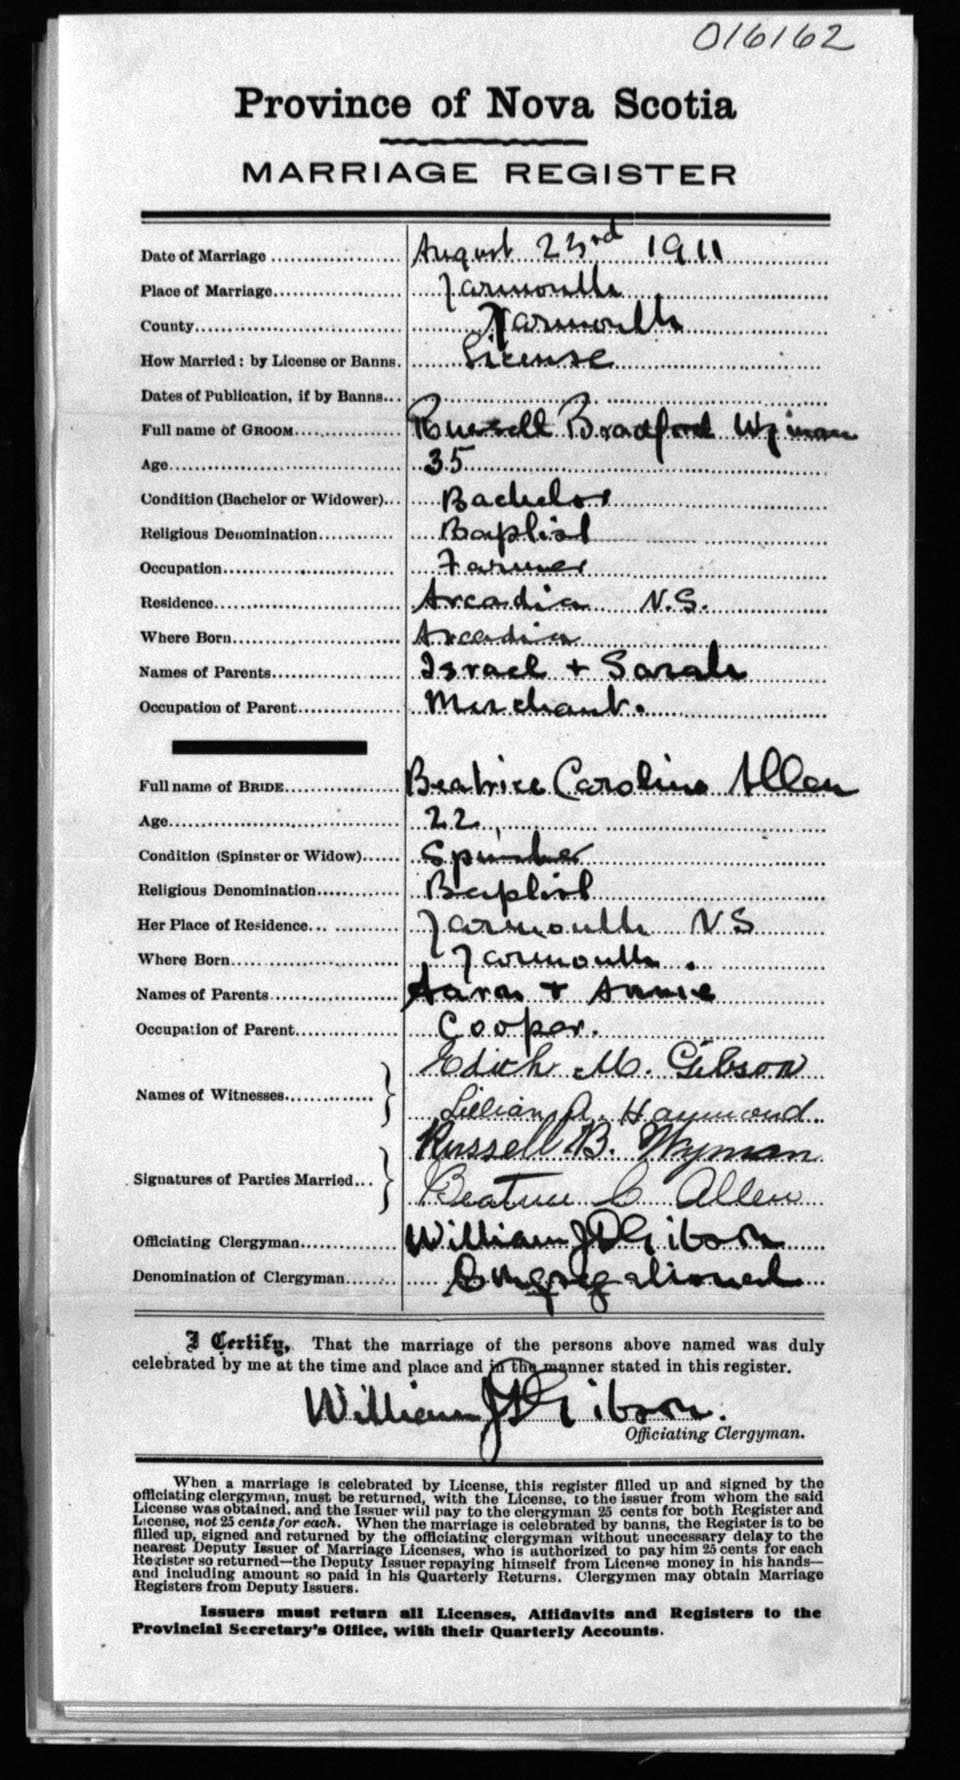 016162
Province of Nova Scotia
MARRIAGE REGISTER
Date of Marriage August 23rd 1911
Place of Marriage Yarmouth
County Yarmouth
How Married: by License or Banns. License
Dates of Publication, if by Banns
Full name of GROOM Russell Bradford Wyman
Age 35
Condition (Bachelor or Widower) Bachelor
Religious Denomination Baptist
Occupation Farmer
Residence Arcadia N.S.
Where Born Arcadia
Names of Parents Israel + Sarah
Occupation of Parent Merchant.
Full name of BRIDE Beatrice Caroline Allen
Age 22
Condition (Spinster or Widow) Spinster
Religious Denomination Baptist
Her Place of Residence Yarmouth NS
Where Born Yarmouth.
Names of Parents Aaron + Annie
Occupation of Parent Cooper.
Names of Witnesses Edith M. Gibson
Lillian A. Haymond
Signatures of Parties Married Russell B. Wyman
Beatrice C Allen
Officiating Clergyman William J D Gibson
Denomination of Clergyman Congregational
I Certify, That the marriage of the persons above named was duly
celebrated by me at the time and place and in the manner stated in this register.
William J D Gibson.
Officiating Clergyman.
When a marriage is celebrated by License, this register filled up and signed by the
officiating clergyman, must be returned, with the License, to the issuer from whom the said
License was obtained, and the Issuer will pay to the clergyman 25 cents for both Register and
License, not 25 cents for each. When the marriage is celebrated by banns, the Register is to be
filled up, signed and returned by the officiating clergyman without unecessary delay to the
nearest Deputy Issuer of Marriage Licenses, who is authorized to pay him 25 cents for each
Register so returned—the Deputy Issuer repaying himself from License money in his hands—
and including amount so paid in his Quarterly Returns. Clergymen may obtain Marriage
Registers from Deputy Issuers.
Issuers must return all Licenses, Affidavits and Registers to the
Provincial Secretary's Office, with their Quarterly Accounts.